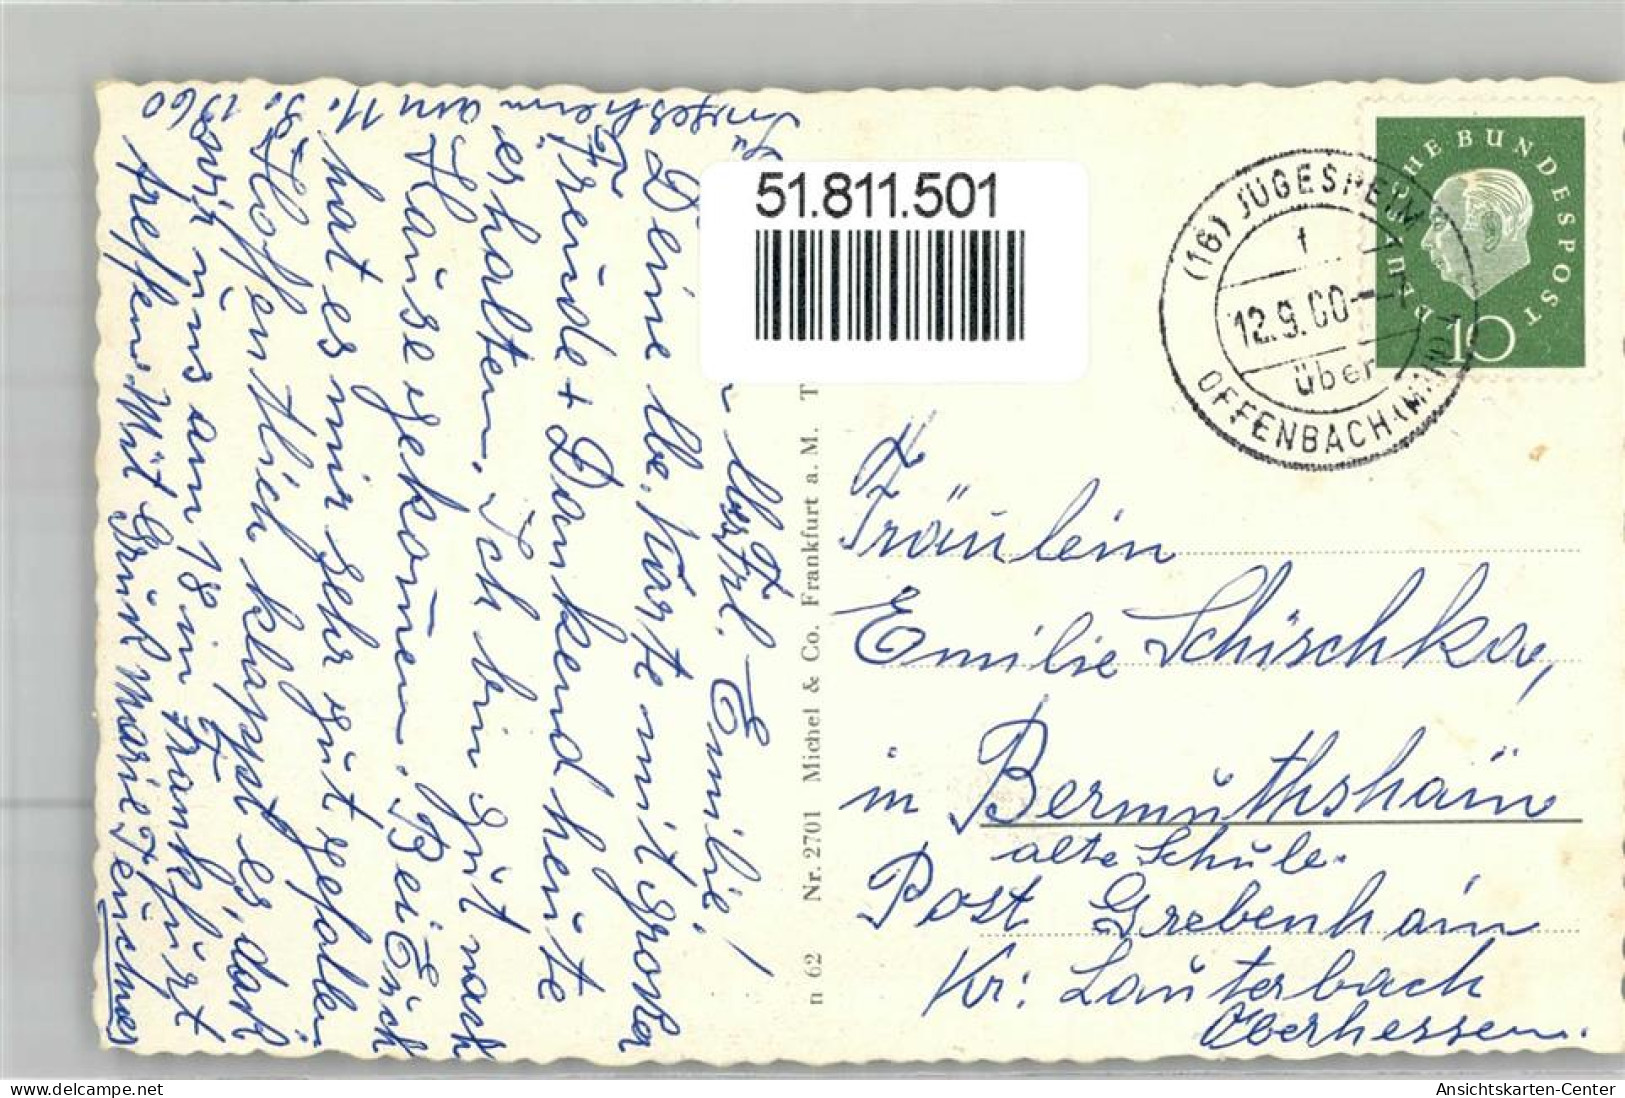 Jügesheim am 11. 9. 1960
lbes Frl. Emilie!
Deine lbe. Karte mit großer
Freude + Dankend heute
erhalten. Ich bin gut nach
Hause gekomen. Bei Euch
hat es mir sehr gut gefalen
Hoffentlich klappt es, daß
wir uns am 18 in Frankfurt
treffen. Mit Gruß Marie
51.811.501
n 62 Nr. 2701 Michel & Co. Frankfurt a. M. T
DEUTSCHE BUNDESPOST
10
(16) JÜGESHEIM
f
12.9.60
über
OFFENBACH (MAIN)
Fräulein
Emilie Schischka,
in Bermuthshain
alte Schule.
Post Grebenhain
Kr: Lauterbach
Oberhessen.
Ansichtskarten-Center